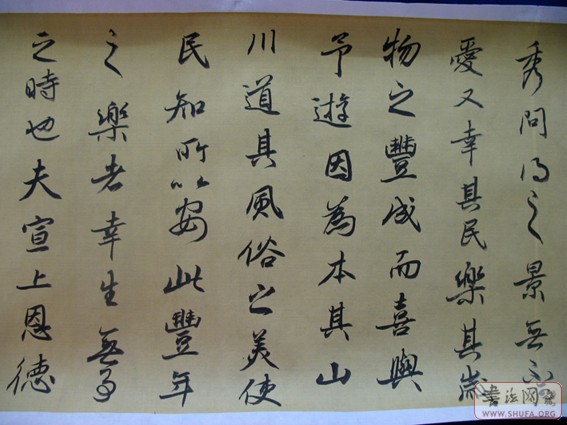 秀問時之景無不可
愛又幸其民樂其歲
物之豐成而喜與
予遊因為本其山
川道其風俗之美使
民知所以安此豐年
之樂者幸生無事
之時也夫宣上恩德
书法网
WWW.SHUFA.ORG